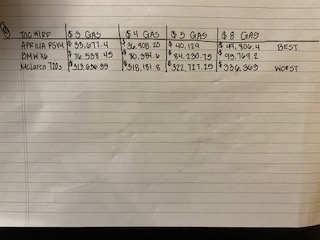 TOC W/RP $3 GAS $4 GAS $5 GAS $8 GAS
APRILIA RSV4 $ 33,677.4 $ 36,908.20 $ 40,129 $ 49,806.4 BEST
BMW X6 $ 76,538.45 $ 80,384.6 $ 84,230.75 $ 95,769.2
McLaren 720s $ 313,636.35 $ 318,181.8 $ 322,727.25 $ 336,363 WORST